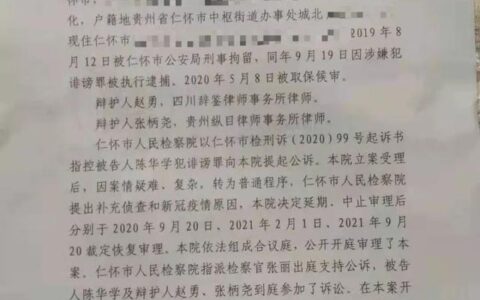 怀市
化，户籍地贵州省仁怀市中枢街道办事处城北
现住仁怀市 2019年8
月12日被仁怀市公安局刑事拘留，同年9月19日因涉嫌犯
诽谤罪被执行逮捕。2020年5月8日被取保候审。
辩护人赵勇，四川辞鉴律师事务所律师。
辩护人张柄尧，贵州纵目律师事务所律师。
仁怀市人民检察院以仁怀市检刑诉（2020）99号起诉书
指控被告人陈华学犯诽谤罪向本院提起公诉。本院立案受理
后，因案情疑难、复杂，转为普通程序，仁怀市人民检察院
提出补充侦查和新冠疫情原因，本院决定延期、中止审理后
分别于2020年9月20日、2021年2月1日、2021年9月
20裁定恢复审理。本院依法组成合议庭，公开开庭审理了本
案。仁怀市人民检察院指派检察官张丽出庭支持公诉，被告
人陈华学及辩护人赵勇、张柄尧到庭参加了诉讼。在本案开